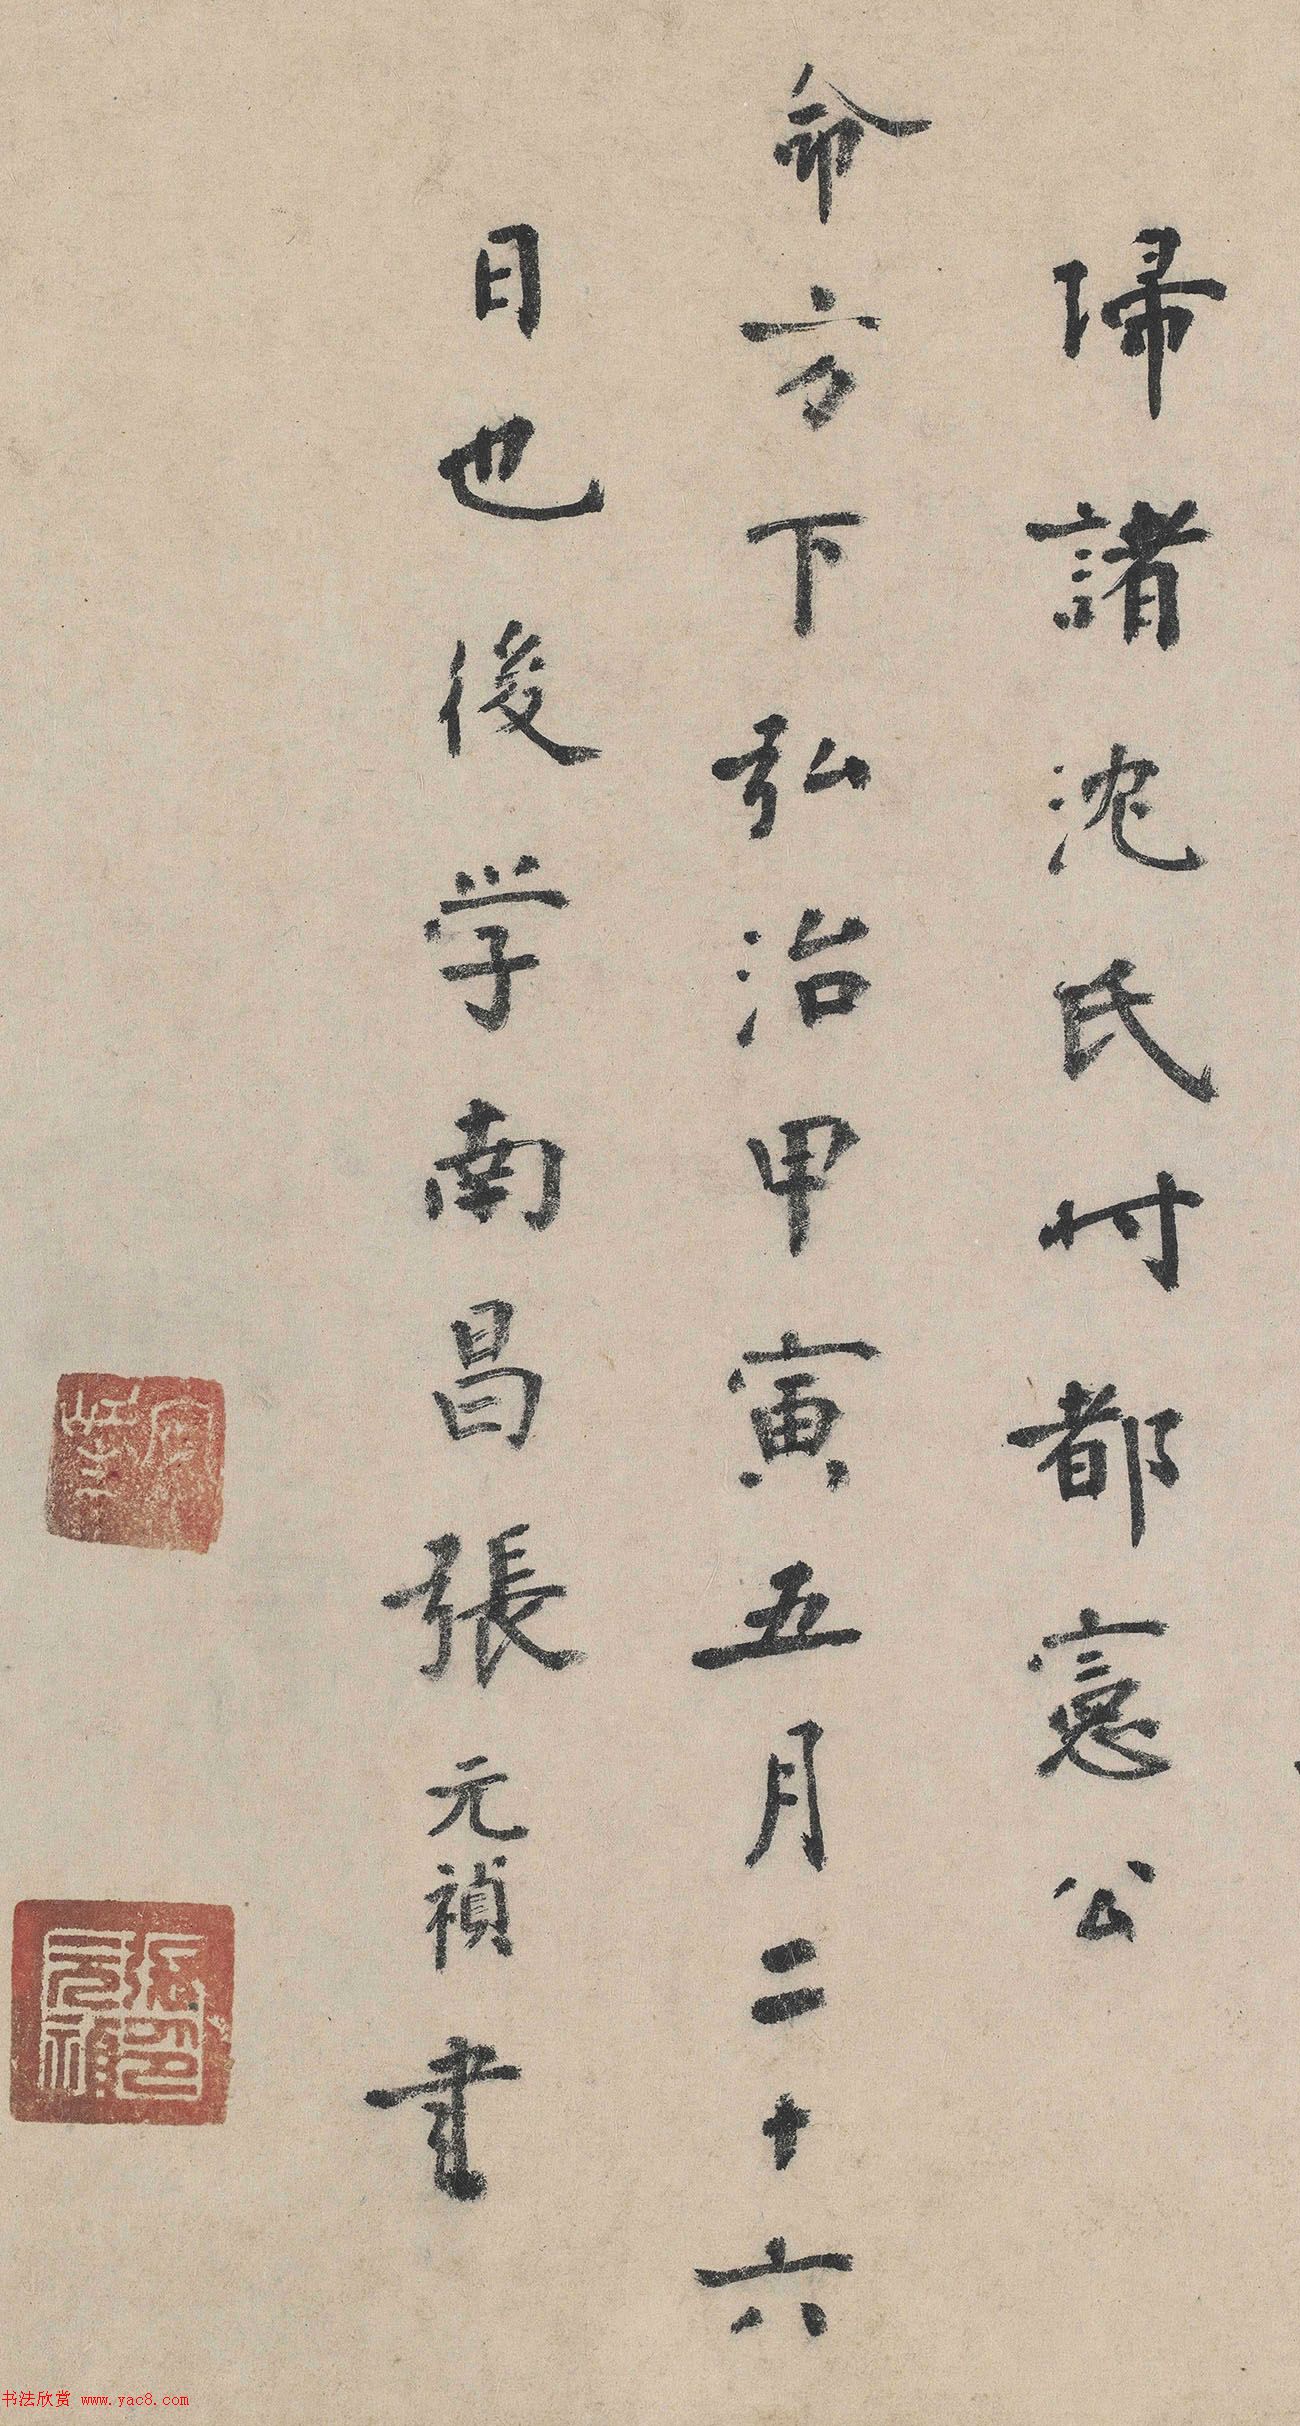 帰諸沈氏时都憲公
命方下弘治甲寅五月二十六
日也後学南昌張元禎書
張印元禎
书法欣赏 www.yac8.com